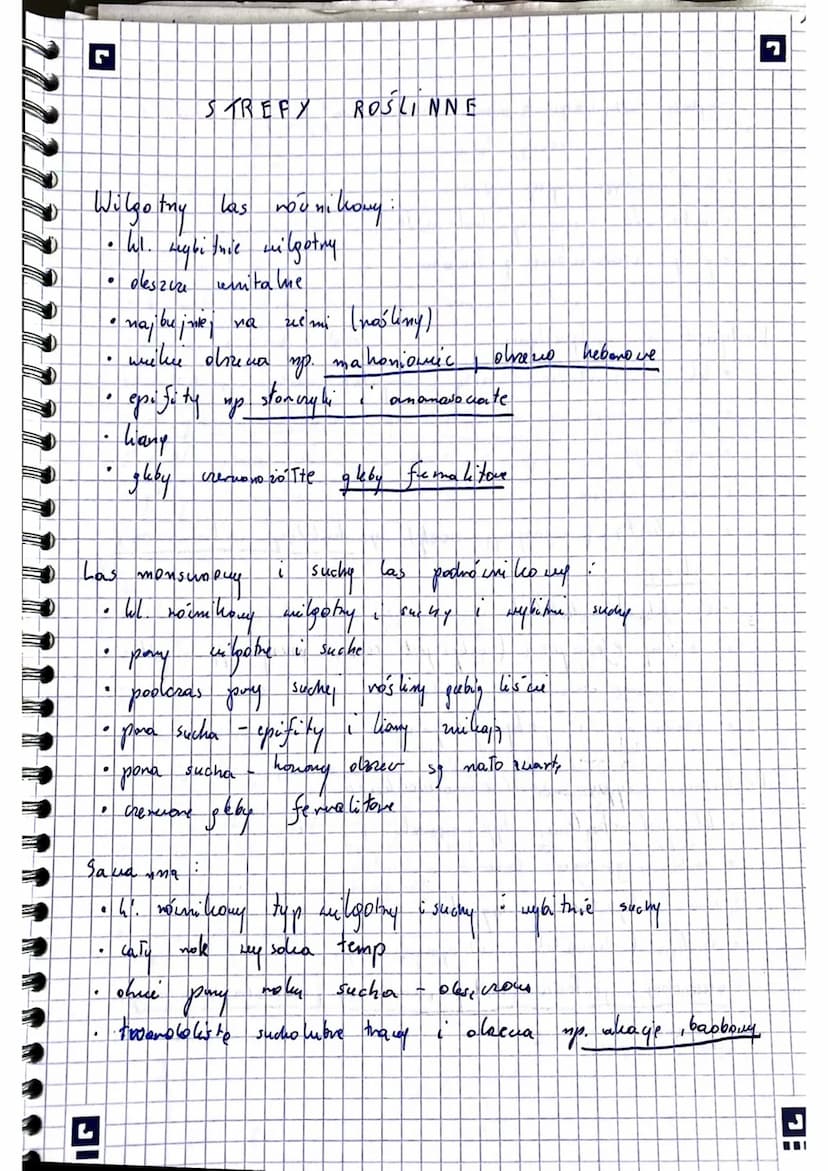 STREFY ROŚLINNE
Wilgotny las równikowy:
• kl. wybitnie wilgotny
• deszcze zenitalne
• najbujniej na ziemi (rośliny)
• wielkie drzewa np. mahoniowiec, drzewo hebanowe
• epifity np storczyki i ananasowate
• liany
• gleby czerwonożółte gleby ferralitowe
Las monsunowy i suchy las podrównikowy:
• kl. równikowy wilgotny i suchy i wybitnie suchy
• pory wilgotne i suche
• podczas pory suchej rośliny gubią liście
• pora sucha - epifity i liany znikają
• pora sucha - korony drzew są
• czerwone gleby ferralitowe
Sawanna:
• kl. równikowy typ wilgotny i suchy i wybitnie suchy
• cały rok wysoka temp
• dwie pory roku sucha - deszczowa
• twardolistne sucholubne trawy i drzewa np. akacje, baobaby